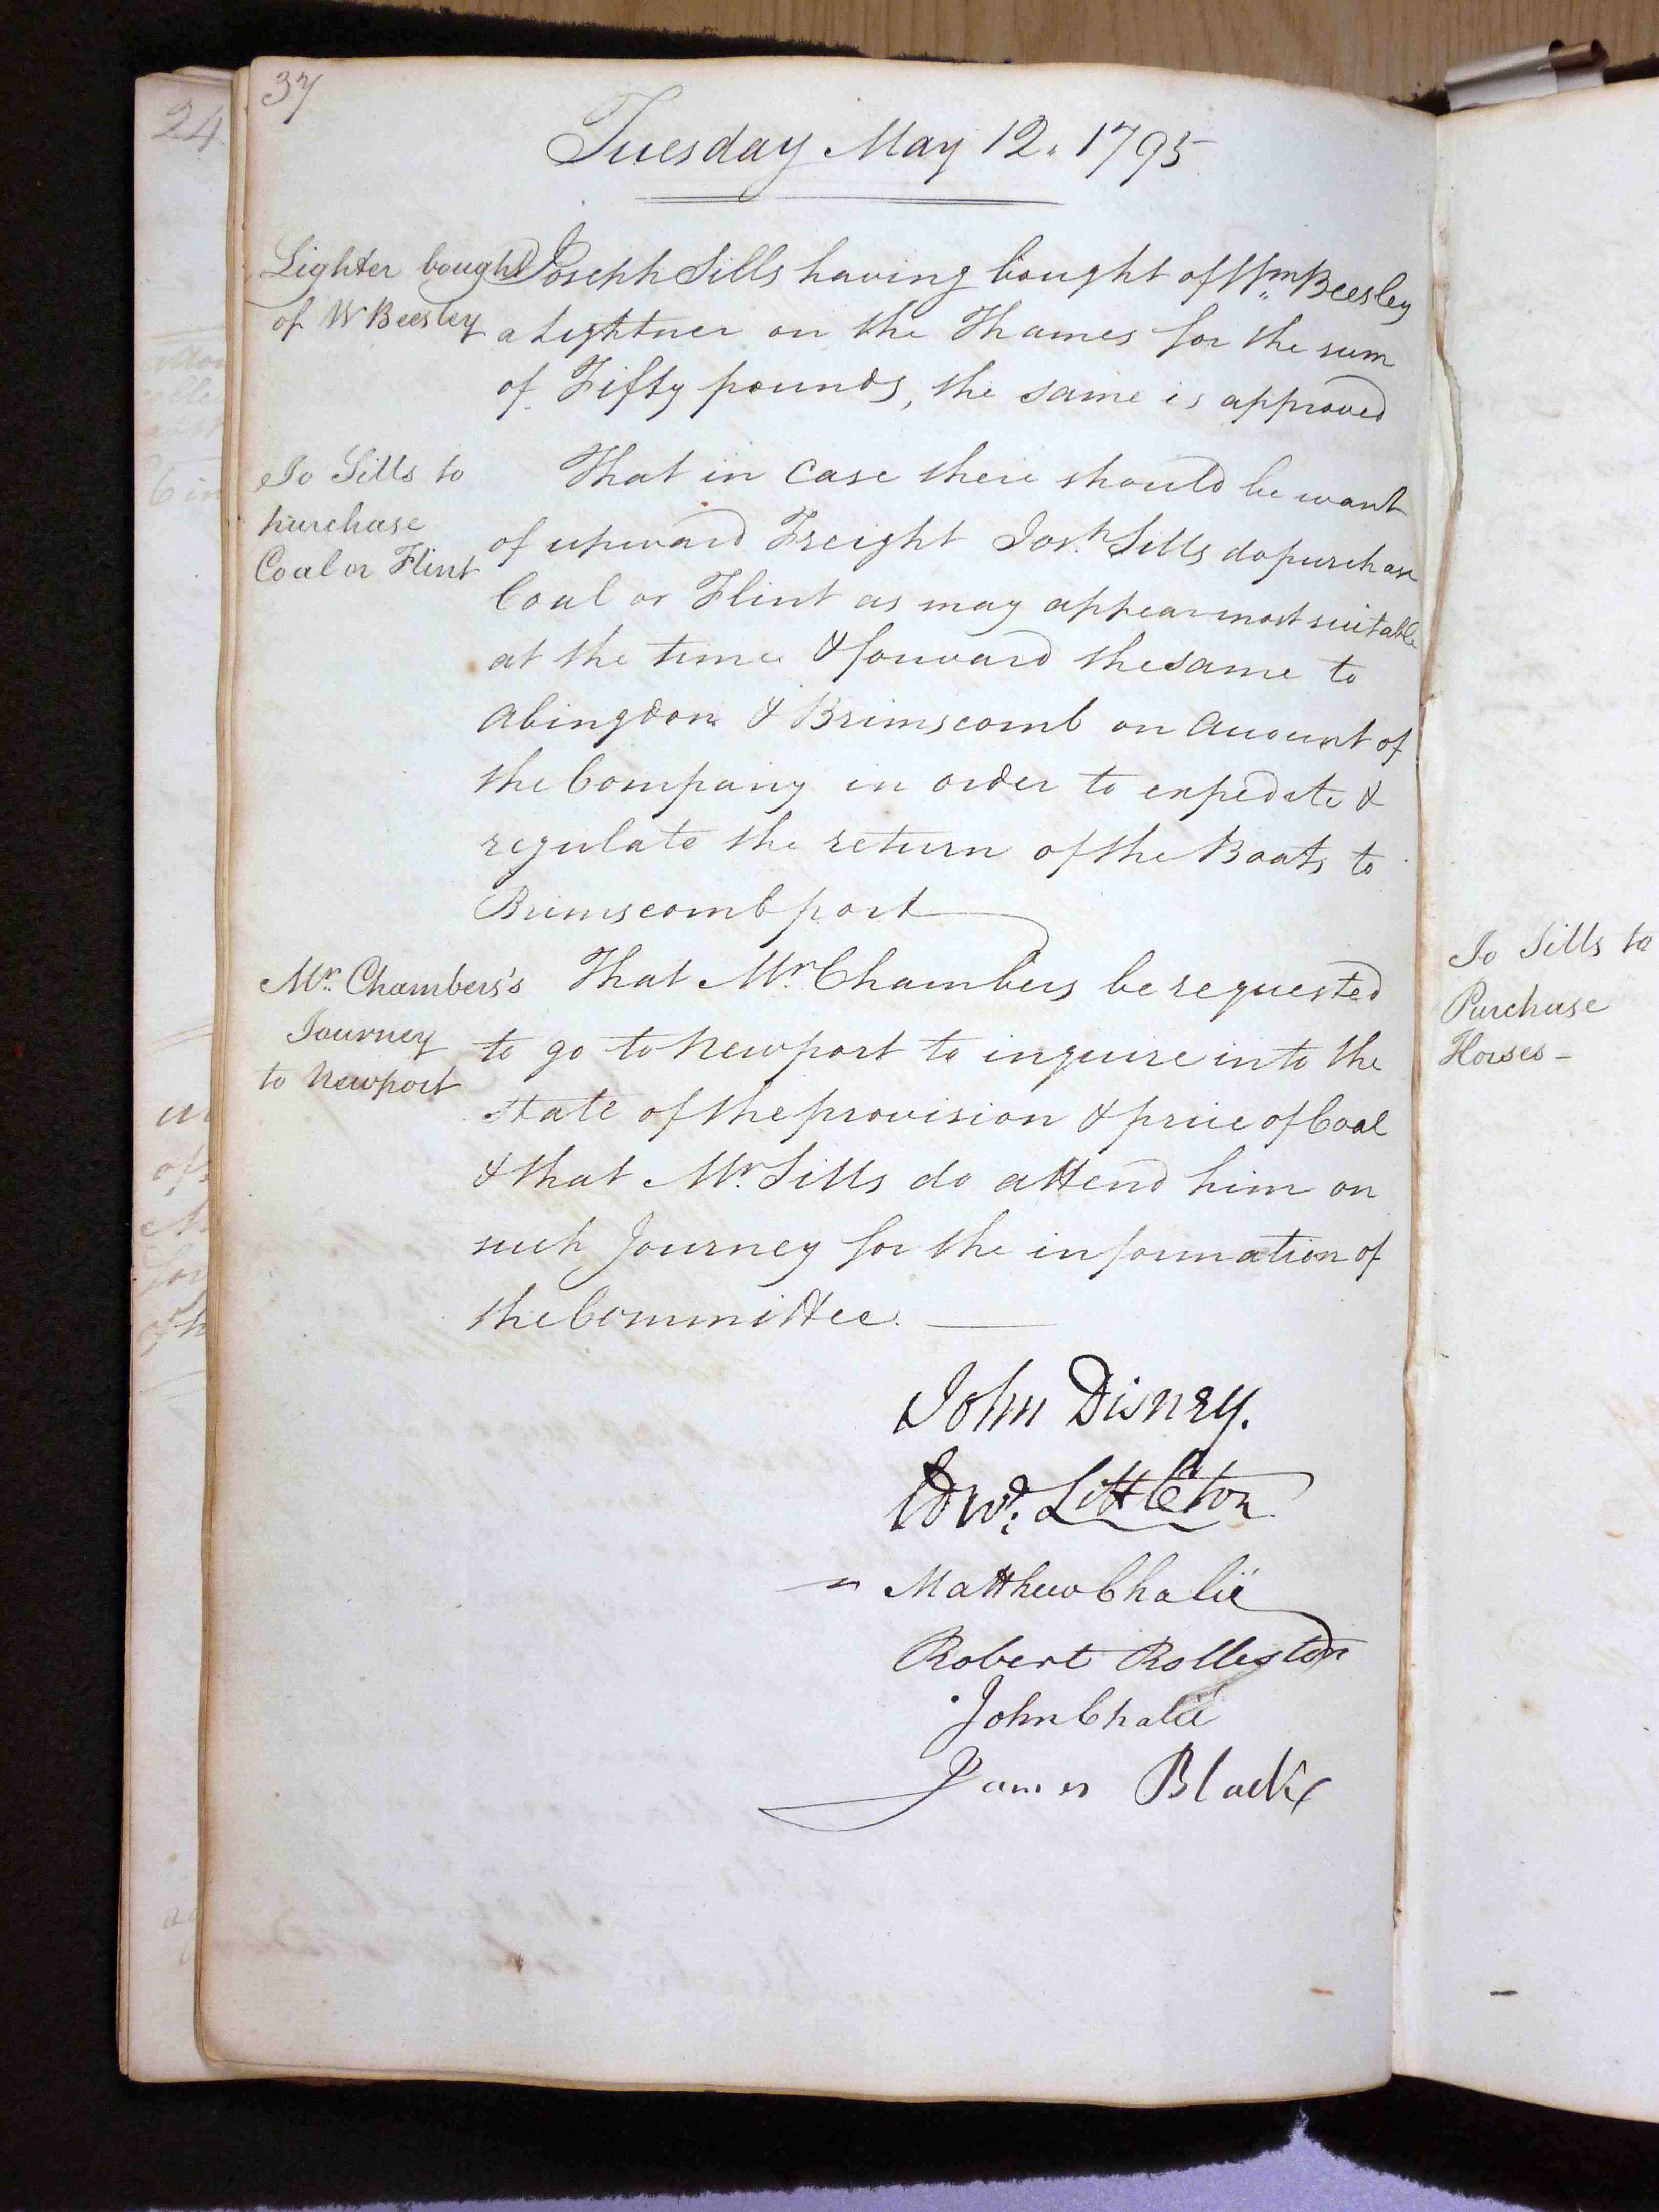 37
Tuesday May 12. 1795
Lighter bought
of W Beesley
Joseph Sills having bought of Wm Beesley
a Lightner on the Thames for the sum
of Fifty pounds, the same is approved
Jo Sills to
purchase
Coal or Flint
That in Case there should be want
of upward Freight Josh. Sills do purchase
Coal or Flint as may appear most suitable
at the time & forward the same to
Abingdon & Brimscomb on Account of
the Company in order to expedite &
regulate the return of the Boats to
Brimscomb port
Mr. Chambers's
Journey
to Newport
That Mr. Chambers be requested
to go to Newport to inquire into the
state of the provision & price of Coal
& that Mr. Sills do attend him on
such Journey for the information of
the Committee.
John Disney.
Edwd: Littleton
Matthew Chalié
Robert Rolleston
John Chalié
James Black
24
Jo Sills to
Purchase
Horses -